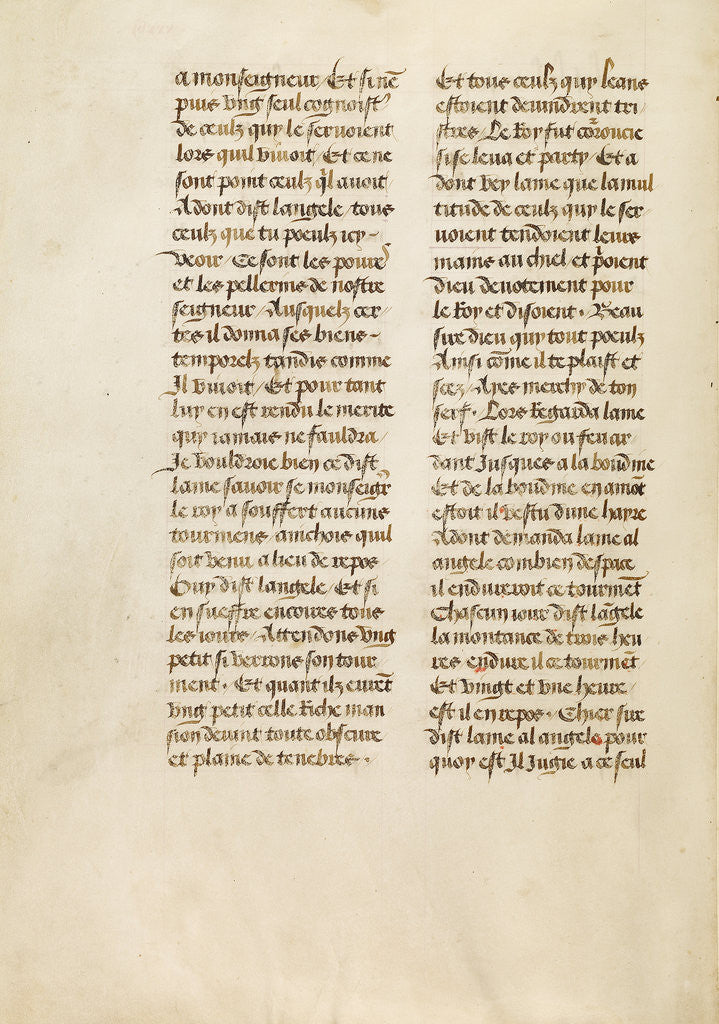 a monseigneur / Et si nē
puis vng seul cognoist
de ceulz quy le seruoient
lors quil viuoit / Et ce ne
sont point ceulz q̄l auoit
Adont dist langele / tous
ceulz que tu poeulz icy -
veoir / Ce sont les poures
et les pellerins de nostre
seigneur / Ausquelz cer-
tes il donna ses biens -
temporelz tandis comme
Il viuoit / Et pour tant
luy en est rendu le merite
quy iamais ne fauldra /
Je vouldroie bien ce dist
lame sauoir se monseigr̄
le roy a souffert aucuns
tourmens / ainchois quil
soit venu a lieu de repos
Ouy dist langele / Et si
en sueffre encores tous
les iours / Attendons vng
petit si verrons son tour-
ment . Et quant ilz eurēt
vng petit celle riche man
sion deuint toute obscure
et plaine de tenebres .
Et tous ceulz quy leans
estoient deuindrent tri-
stres / Le Roy fut cōroucie
si se leua et party / Et a
dont vey lame que la mul
titude de ceulz quy le ser-
uoient tendoient leurs
mains au chiel et p̄oient
dieu deuotement pour
le Roy et disoient . Beau
sire dieu quy tout poeulz
Ainsi cōme il te plaist et
scez / Ayes merchy de ton
serf . Lors Regarda lame
Et vist le roy ou feu ar-
dant Jusques a la boudine
Et de la boudine en amōt
estoit il vestu dune hayre
Adont demanda lame al
angele combien despace
il endureroit ce tourmēt
Chascun iour dist lāgele
la montance de trois heu
res endure il ce tourmēt
Et vingt et vne heure /
est il en repos . Chier sire
dist lame al angele pour
quoy est Il Jugie a ce seul